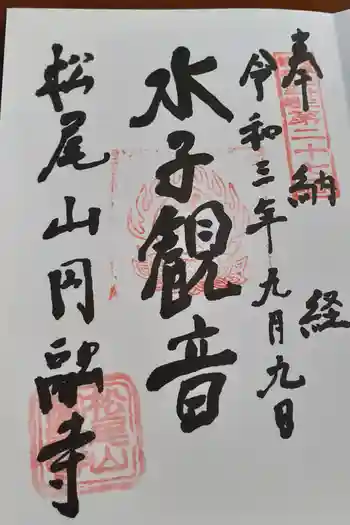 奉納経
令和三年九月九日
水子観音
松尾山円福寺
松尾山